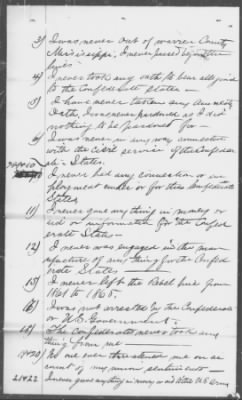 3) I was never out of warren County
Mississippi, I never passed beyond the
lines
4) I never took any oath to bear allegiance
to the Confederate States —
5) I have never taken any Amnesty
Oath, I was never pardoned as I did
nothing to be pardoned for —
6) I was never in any way connected
with the Civil service of the Confeder
ate States.
I never had any connection or em
ployment under or for the Confederate
States
11) I never gave anything in money or
aid or information for the Confed
erate States —
12) I never was engaged in the man-
ufacture of any thing for the Confed
erate States —
13) I never left the Rebel line from
1861 to 1865.
16) I was not arrested by the Confederate
or U.S. Government —
18) The Confederates never took any
thing from me —
19420) No one ever threatened me on ac
count of my union sentiments —
21422 I never gave anything in money or aid to the U.S. Army